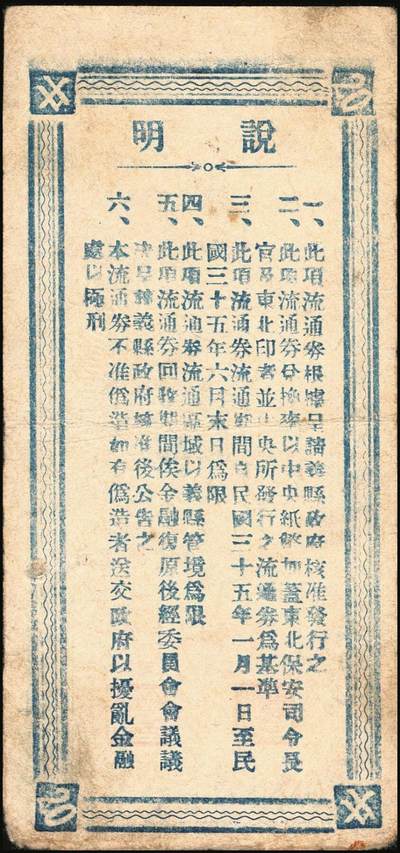 說明
一、此項流通券根據呈請義縣政府核准發行之
二、此項流通券兌換率以中央紙幣加蓋東北保安司令長
官及東北印者並中央所發行之流通券為基準
三、此項流通券流通期間自民國三十五年一月一日至民
國三十五年六月末日為限
四、此項流通券流通區域以義縣管境為限
五、此項流通券回收期間俟金融復原後經委員會會議議
決呈義縣政府核准後公告之
六、本流通券不准偽造如有偽造者送交政府以擾亂金融
處以極刑